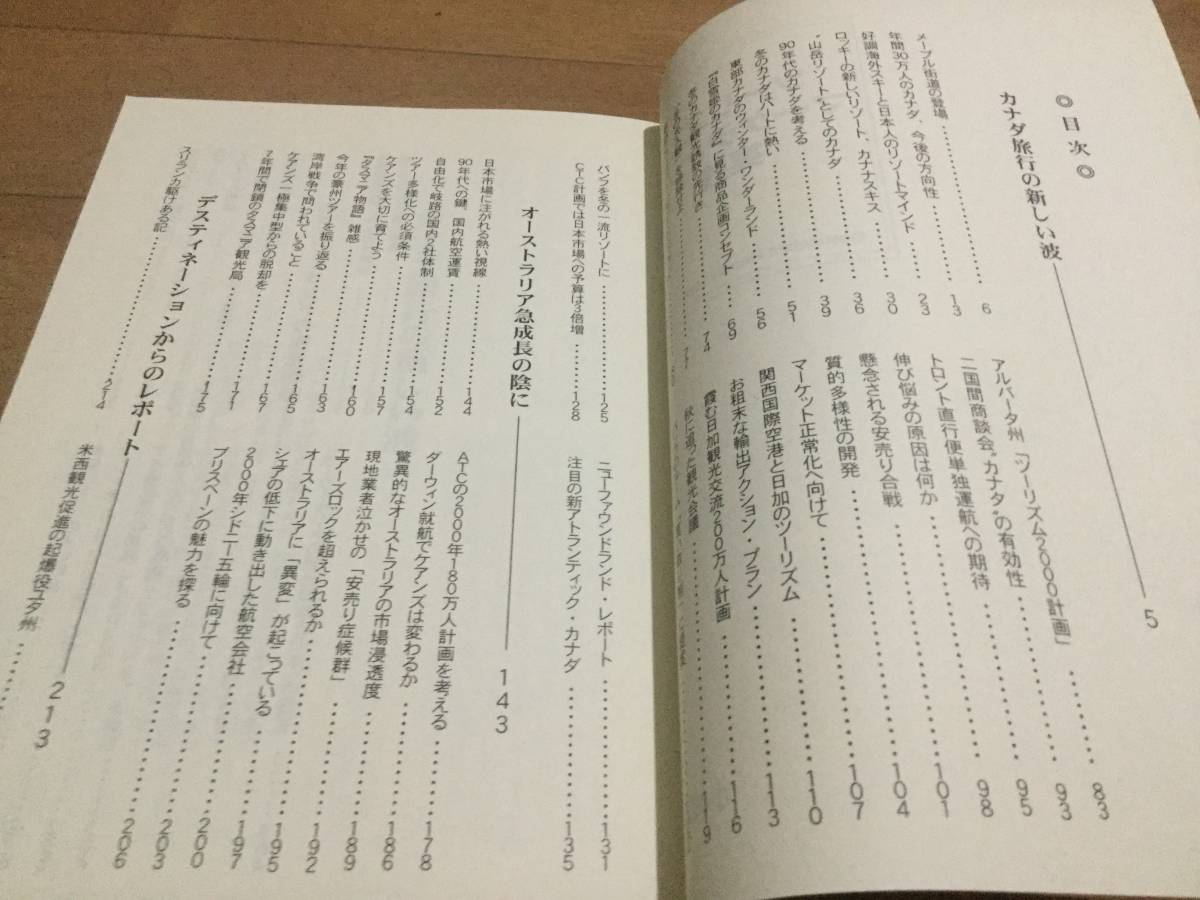 ◎目次◎
カナダ旅行の新しい波 5
メープル街道の登場 6
年間30万人のカナダ、今後の方向性 13
好調海外スキーと日本人のリゾートマインド 23
ロッキーの新しいリゾート、カナナスキス 30
“山岳リゾート”としてのカナダ 36
90年代のカナダを考える 39
冬のカナダはハートに熱い 51
東部カナダのウィンター・ワンダーランド 56
『白雪姫のカナダ』に見る商品企画コンセプト 69
冬のカナダ観光誘致の先行き 74
アルバータ州「ツーリズム2000計画」 83
二国間商談会“カナタ”の有効性 93
トロント直行便単独運航への期待 95
伸び悩みの原因は何か 98
懸念される安売り合戦 101
質的多様性の開発 104
マーケット正常化へ向けて 107
関西国際空港と日加のツーリズム 110
お粗末な輸出アクション・プラン 113
霞む日加観光交流200万人計画 116
秋に迫った観光会議 119
バンフを冬の一流リゾートに 125
CTC計画では日本市場への予算は3倍増 128
ニューファウンドランド・レポート 131
注目の新アトランティック・カナダ 135
オーストラリア急成長の陰に 143
日本市場に注がれる熱い視線 144
90年代への鍵、国内航空運賃 152
自由化で岐路の国内2社体制 154
ツアー多様化への必須条件 157
ケアンズを大切に育てよう 160
『タスマニア物語』雑感 163
今年の豪州ツアーを振り返る 165
湾岸戦争で問われていること 167
ケアンズ一極集中型からの脱却を 171
7年間で閉鎖のタスマニア観光局 175
ATCの2000年180万人計画を考える 178
ダーウィン就航でケアンズは変わるか 186
驚異的なオーストラリアの市場浸透度 189
現地業者泣かせの「安売り症候群」 192
エアーズロックを超えられるか 195
オーストラリアに「異変」が起こっている 197
シェアの低下に動き出した航空会社 200
2000年シドニー五輪に向けて 203
ブリスベーンの魅力を探る 206
デスティネーションからのレポート 213
スリランカ駆けある記 214
米西観光促進の起爆役ユタ州